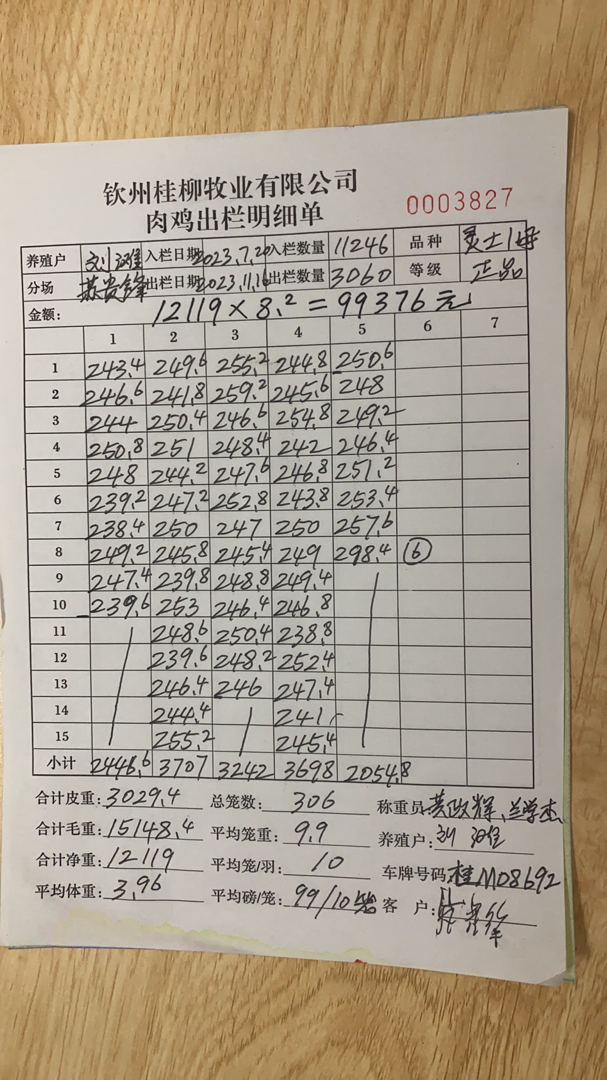 钦州桂柳牧业有限公司
肉鸡出栏明细单
0003827
养殖户 刘 入栏日期 2023.7.20 入栏数量 11246 品种 灵士1母
分场 苏贵锋 出栏日期 2023.11.16 出栏数量 3060 等级 正品
金额: 12119×8.2=99376元
1 2 3 4 5 6 7
1 243.4 249.6 255.2 244.8 250.6
2 246.6 241.8 259.2 245.6 248
3 244 250.4 246.6 254.8 249.2
4 250.8 251 248.4 242 246.4
5 248 244.2 247.6 246.8 251.2
6 239.2 247.2 252.8 243.8 253.4
7 238.4 250 247 250 257.6
8 249.2 245.8 245.4 249 298.4 ⑥
9 247.4 239.8 248.8 249.4
10 239.6 253 246.4 246.8
11 248.6 250.4 238.8
12 239.6 248.2 252.4
13 246.4 246 247.4
14 244.4 241
15 255.2 245.4
小计 2446.6 3707 3242 3698 2054.8
合计皮重: 3029.4 总笼数: 306 称重员: 黄政辉、兰学杰
合计毛重: 15148.4 平均笼重: 9.9 养殖户: 刘
合计净重: 12119 平均笼/羽: 10 车牌号码: 桂MD8692
平均体重: 3.96 平均磅/笼: 99/10 客户: